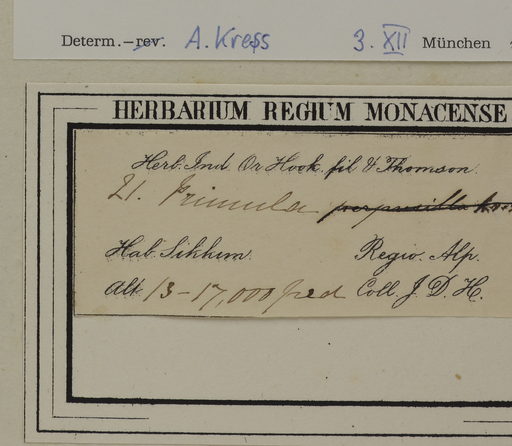 Determ.–rev. A. Kress 3. XII München
HERBARIUM REGIUM MONACENSE
Herb. Ind. Or. Hook. fil. & Thomson.
21. Primula perpusilla
Hab. Sikkim. Regio. Alp.
Alt. 13–17,000 ped Coll. J. D. H.